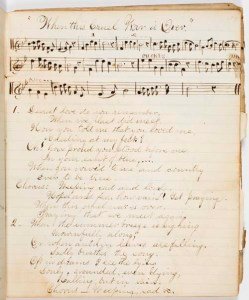 "When this Cruel War is Over."
1. Dearest love do you remember,
When we last did meet
How you told me that you loved me,
Kneeling at my feet?
Oh! how proud you stood before me
In your suit of blue,
When you vow'd to me and country
Ever to be true.
Chorus: Weeping sad and lonely,
Hopes and fears how vain! Yet praying,
When this cruel war is over,
Praying that we meet again.
2. When the summer breeze is sighing
Mournfully along,
Or when autumn leaves are falling,
Sadly breathes the song.
Oft in dreams I see thee lying
lonely, wounded, even dying,
Calling but in vain.
Chorus: Weeping, sad &c.